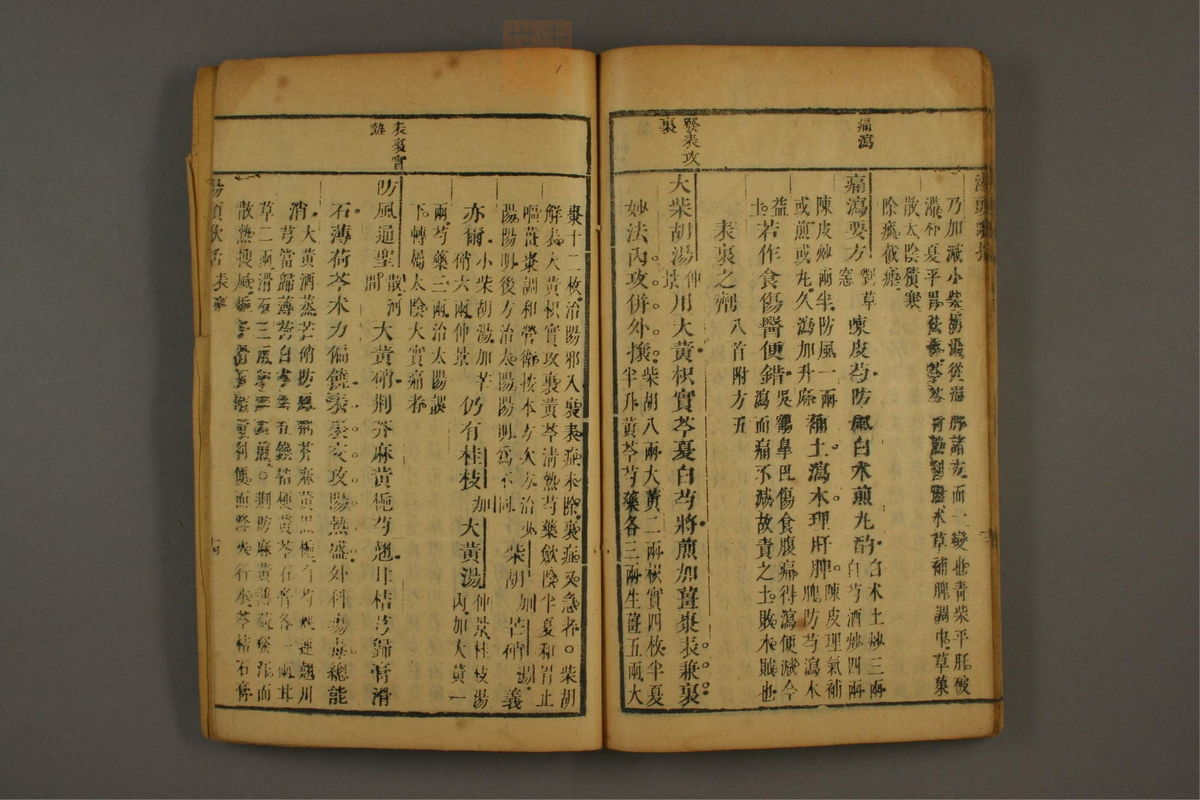 痛瀉
發表攻
裏
湯頭歌括
乃加減小柴胡湯從溫脾諸方而一變也青柴平肝破
滯朴夏平胃祛痰芩
熱利 术草補脾調中草菓
散太陰積寒
除痰截瘧
痛瀉要方
劉草
窓
陳皮芍防風白朮煎丸酌
白术土炒三兩
白芍酒炒四兩
陳皮炒兩半防風一兩
或煎或丸久瀉加升麻
補土瀉木理肝脾
陳皮理氣補
脾防芍瀉木
益
土
若作食傷醫便錯
吳鶴皐曰傷食腹痛得瀉便減今
瀉而痛不減故責之土敗木賊也
表裏之劑
八首附方五
大柴胡湯
仲
景
用大黃枳實芩夏白芍將煎加薑棗表兼裏
妙法內攻併外攘
柴胡八兩大黃二兩枳實四枚半夏
半升黃芩芍藥各三兩生薑五兩大
表裏實
熱
棗十二枚治陽邪入裏表症未除裏症又急者柴胡
解表大黃枳實攻裏黃芩清熱芍藥斂陰半夏和胃止
嘔薑棗調和營衛按本方次方治少
陽陽明後方治太陽陽明爲不同
柴胡加芒硝湯義
亦爾
小柴胡湯加芒
硝六兩仲景
仍有桂枝加大黃湯
仲景桂枝湯
內加大黃一
兩芍藥三兩治太陽誤
下轉屬太陰大實痛者
防風通聖
散河
間
大黃硝荆芥麻黃梔芍翹甘桔芎歸膏滑
石薄荷芩术力偏饒表裏交攻陽熱盛外科瘍毒總能
消
大黃酒蒸芒硝防風荆芥麻黃黑梔白芍連翹川
芎當歸薄荷白术五錢桔梗黃芩石膏各一兩甘
草二兩滑石三兩
荆防麻黃薄荷發汗而
散熱搜風
利便而降火行水芩桔石膏
湯頭歌括
表裏